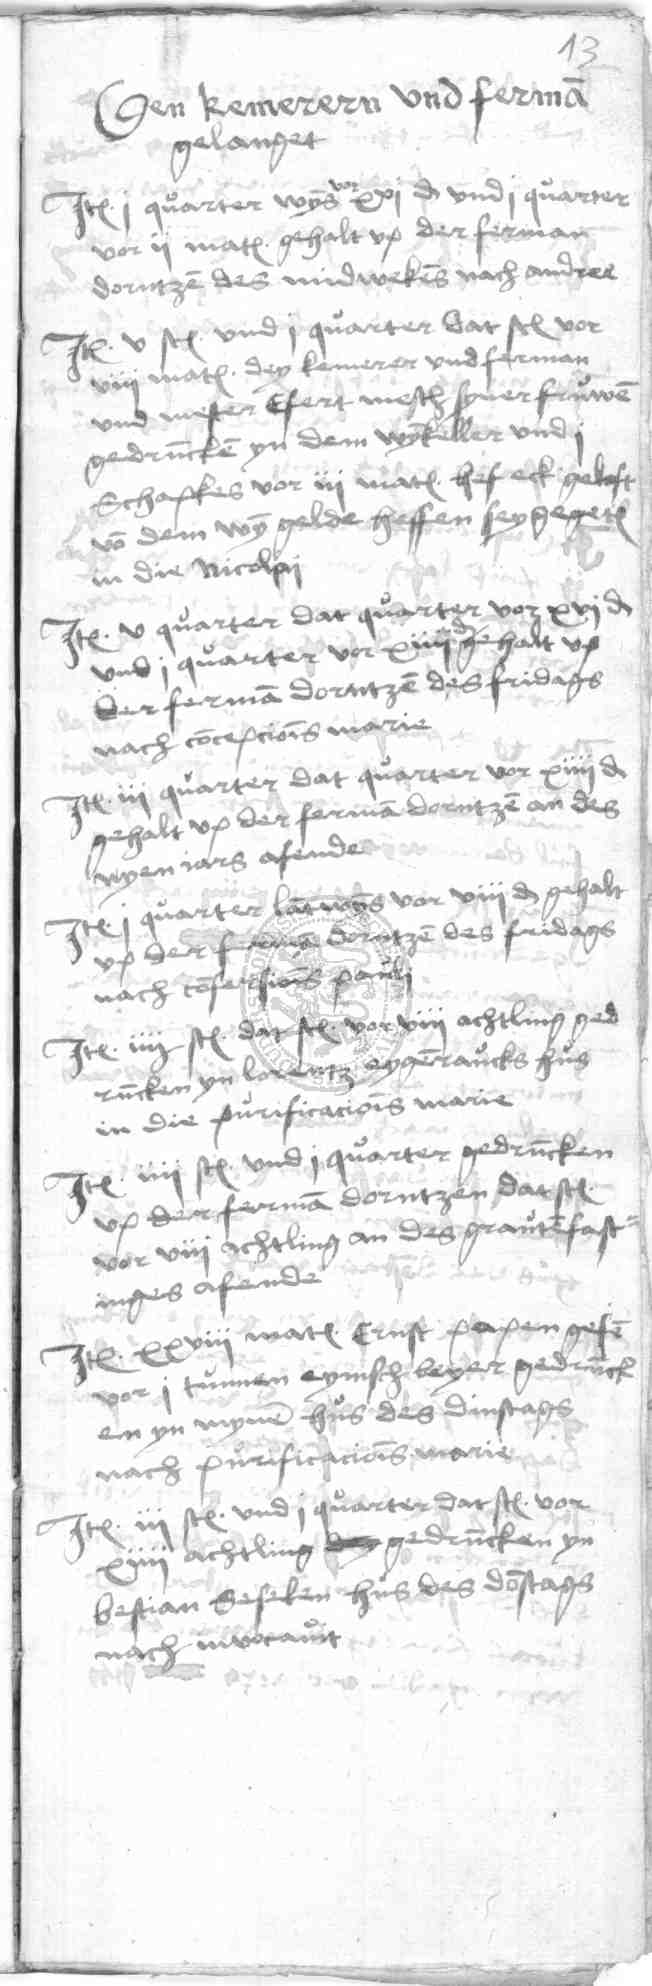 13
Den kemerern vnd fermā
gelanget
Itē. j quarter wyṅs vor xxi d vnd j quarter
vor ii matͥ. gehalt vp der ferman
dorntzē des midwekēs nach andree
Itē. v stͥ. vnd j quarter dat stͥ vor
viii matͥ. dey kemerer vnd ferman
vnd mester Efert mesth syner fruwē
gedrūcken yn dem wȳkeller vnd j
Schapkes vor iii matͥ. hef eck gekoft
vō dem wȳ gelde heffen sey gegetͥ
in die Nicolai
Itē. v quarter dat quarter vor xvi d
vnd j quarter vor xiiii d gehalt vp
der fermā dorntzē des fridags
nach cōcepcioīs marie
Itē. iii quarter dat quarter vor xiiii d
gehalt vp der fermā dorntzē an des
nyen iars afende
Itē j quarter lātwyṅs vor viii d gehalt
vp der fermā dorntzē des fridags
nach cōfersioīs pauli
Itē. iiij stͥ. dat stͥ. vor viii achtling ged
rūcken yn lorentz eygēraucks hus
in die purificacioīs marie
Itē. iiij stͥ. vnd j quarter gedrūcken
vp der fermā dorntzen dat stͥ.
vor viii achtling an des grautē fast=
inges afende
Itē. xxviii matͥ. Ernst papen gefē
vor j tunnen eymsch beyer gedrūck
en yn mynē hus des dinstags
nach purificacioīs marie
Itē. iii stͥ. vnd j quarter dat stͥ. vor
xiiii achtling gedrūcken yn
bestian Seseken hus des dōstags
nach invocauit